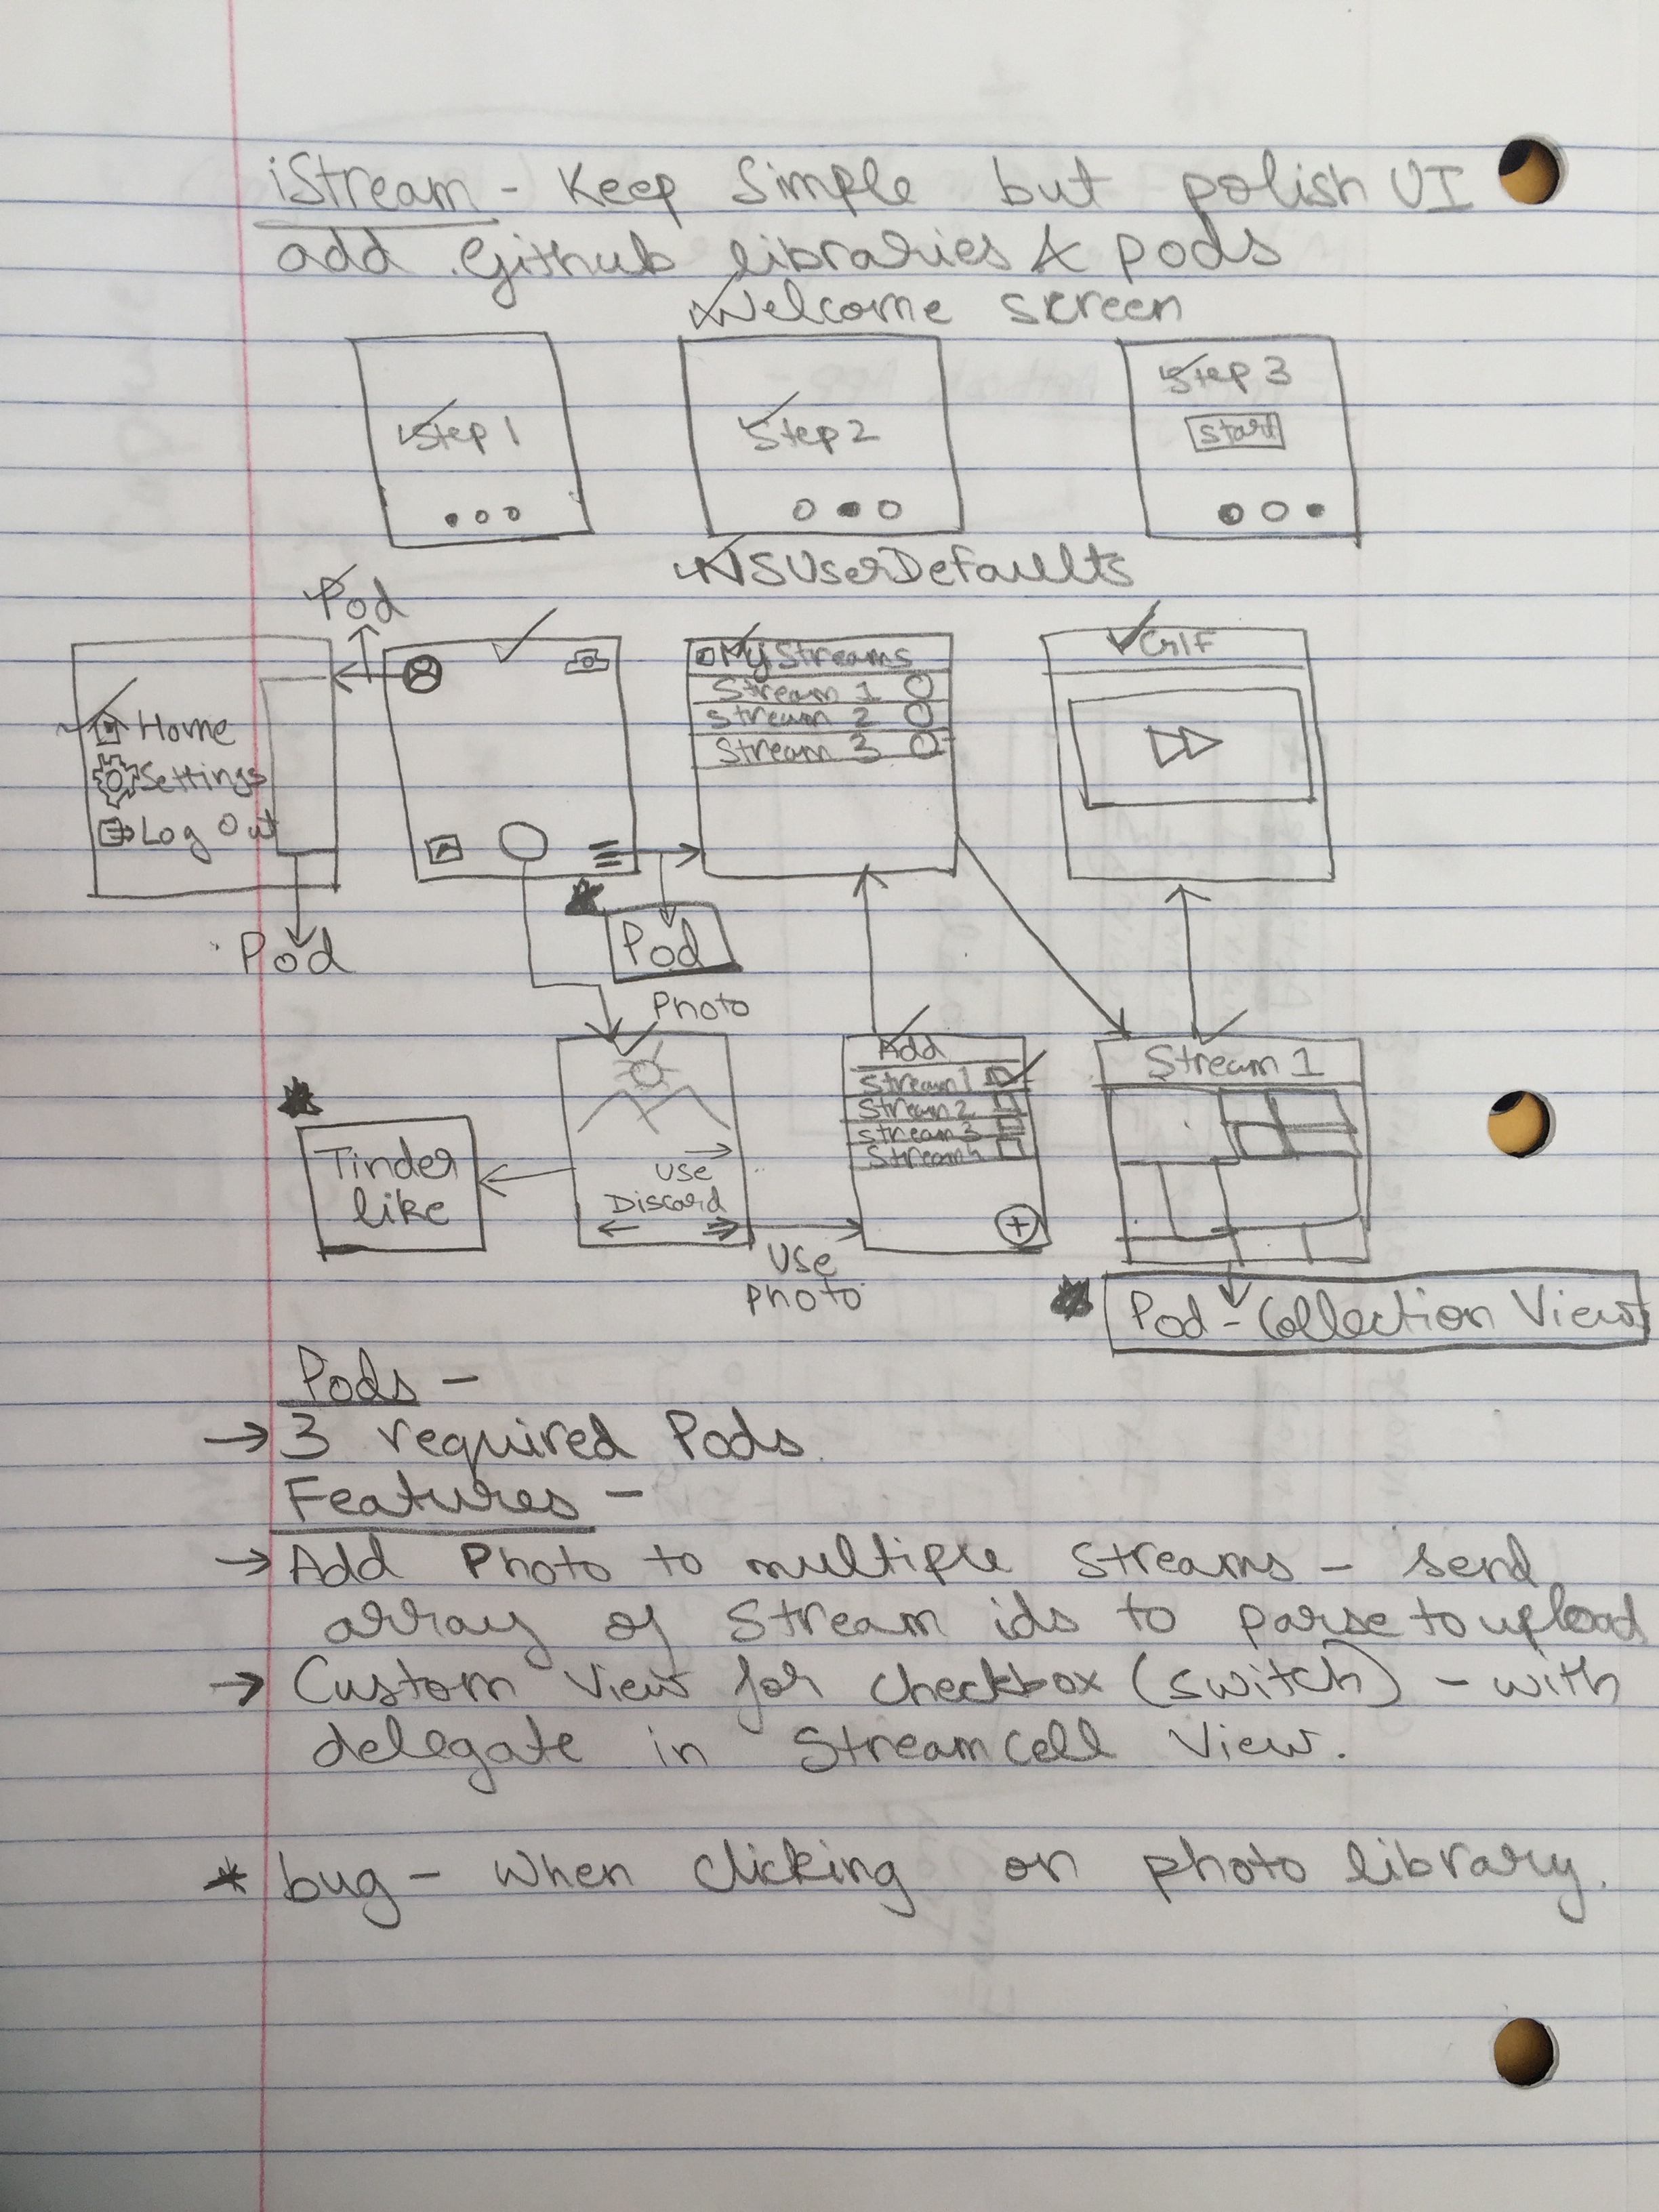 iStream - Keep Simple but polish UI
add Github libraries & pods
Welcome screen
Step 1
Step 2
Step 3
Start
NSUserDefaults
Pod
Home
Settings
Log Out
Pod
My Streams
Stream 1
Stream 2
Stream 3
GIF
Pod
Photo
Use
Discard
Tinder
like
Use
Photo
Add
Stream 1
Stream 2
Stream 3
Stream 4
Stream 1
Pod - Collection View
Pods -
→ 3 required Pods.
Features -
→ Add Photo to multiple Streams - send
array of Stream ids to parse to upload
→ Custom View for checkbox (switch) - with
delegate in StreamCell View.
* bug - When clicking on photo library.